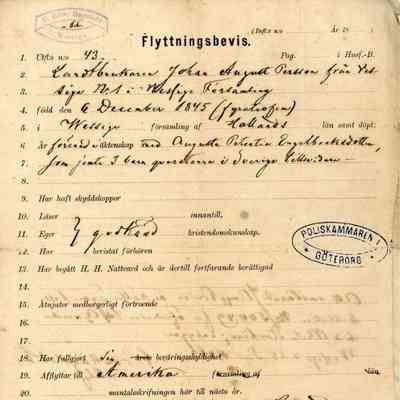 (Infts n:o År 18
Flyttningsbevis.
1. Utfts n:o 43. Pag. i Husf.-B.
2. Landtbrukaren Johan August Persson från Ves
3. sige No 1 i Wessige Församling
4. född den 6 December 1845 (fyratiofem)
5. i Wessige församling af Hallands län samt döpt;
6. är förenad i äktenskap med Augusta Petersdotter
7. som jemte 3 barn qvarblifva i Sverige tillsvidare
8.
9. Har haft skyddskoppor
10. Läser innantill.
11. Eger godkänd kristendomskunskap.
12. Har bevistat förhören
13. Har begått H. H. Nattvard och är dertill fortfarande berättigad
14.
15. Åtnjuter medborgerligt förtroende
16.
17.
18. Har fullgjort sin årets beväringsskyldighet
19. Afflyttar till Amerika församling af län.
20. mantalsskrifningen här till nästa år.
POLISKAMMAREN I
GÖTEBORG